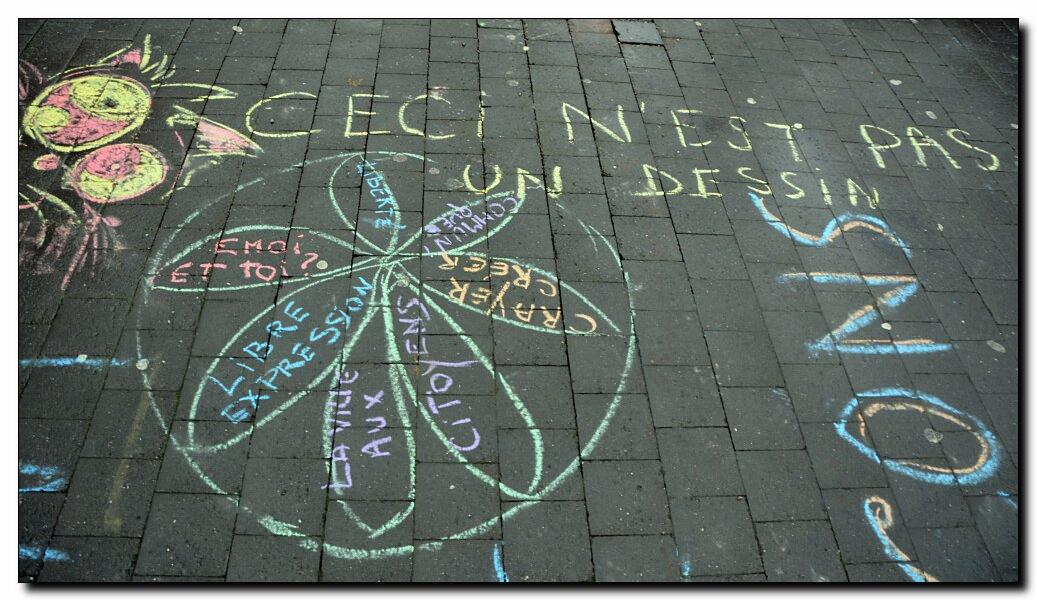 CECi N'EST PAS
UN DESSiN
LIBERTÉ
EMOi
ET TOi?
LIBRE
EXPRESSION
LA VILLE
AUX
CITOYENS
CRAYER
CREER
ONS